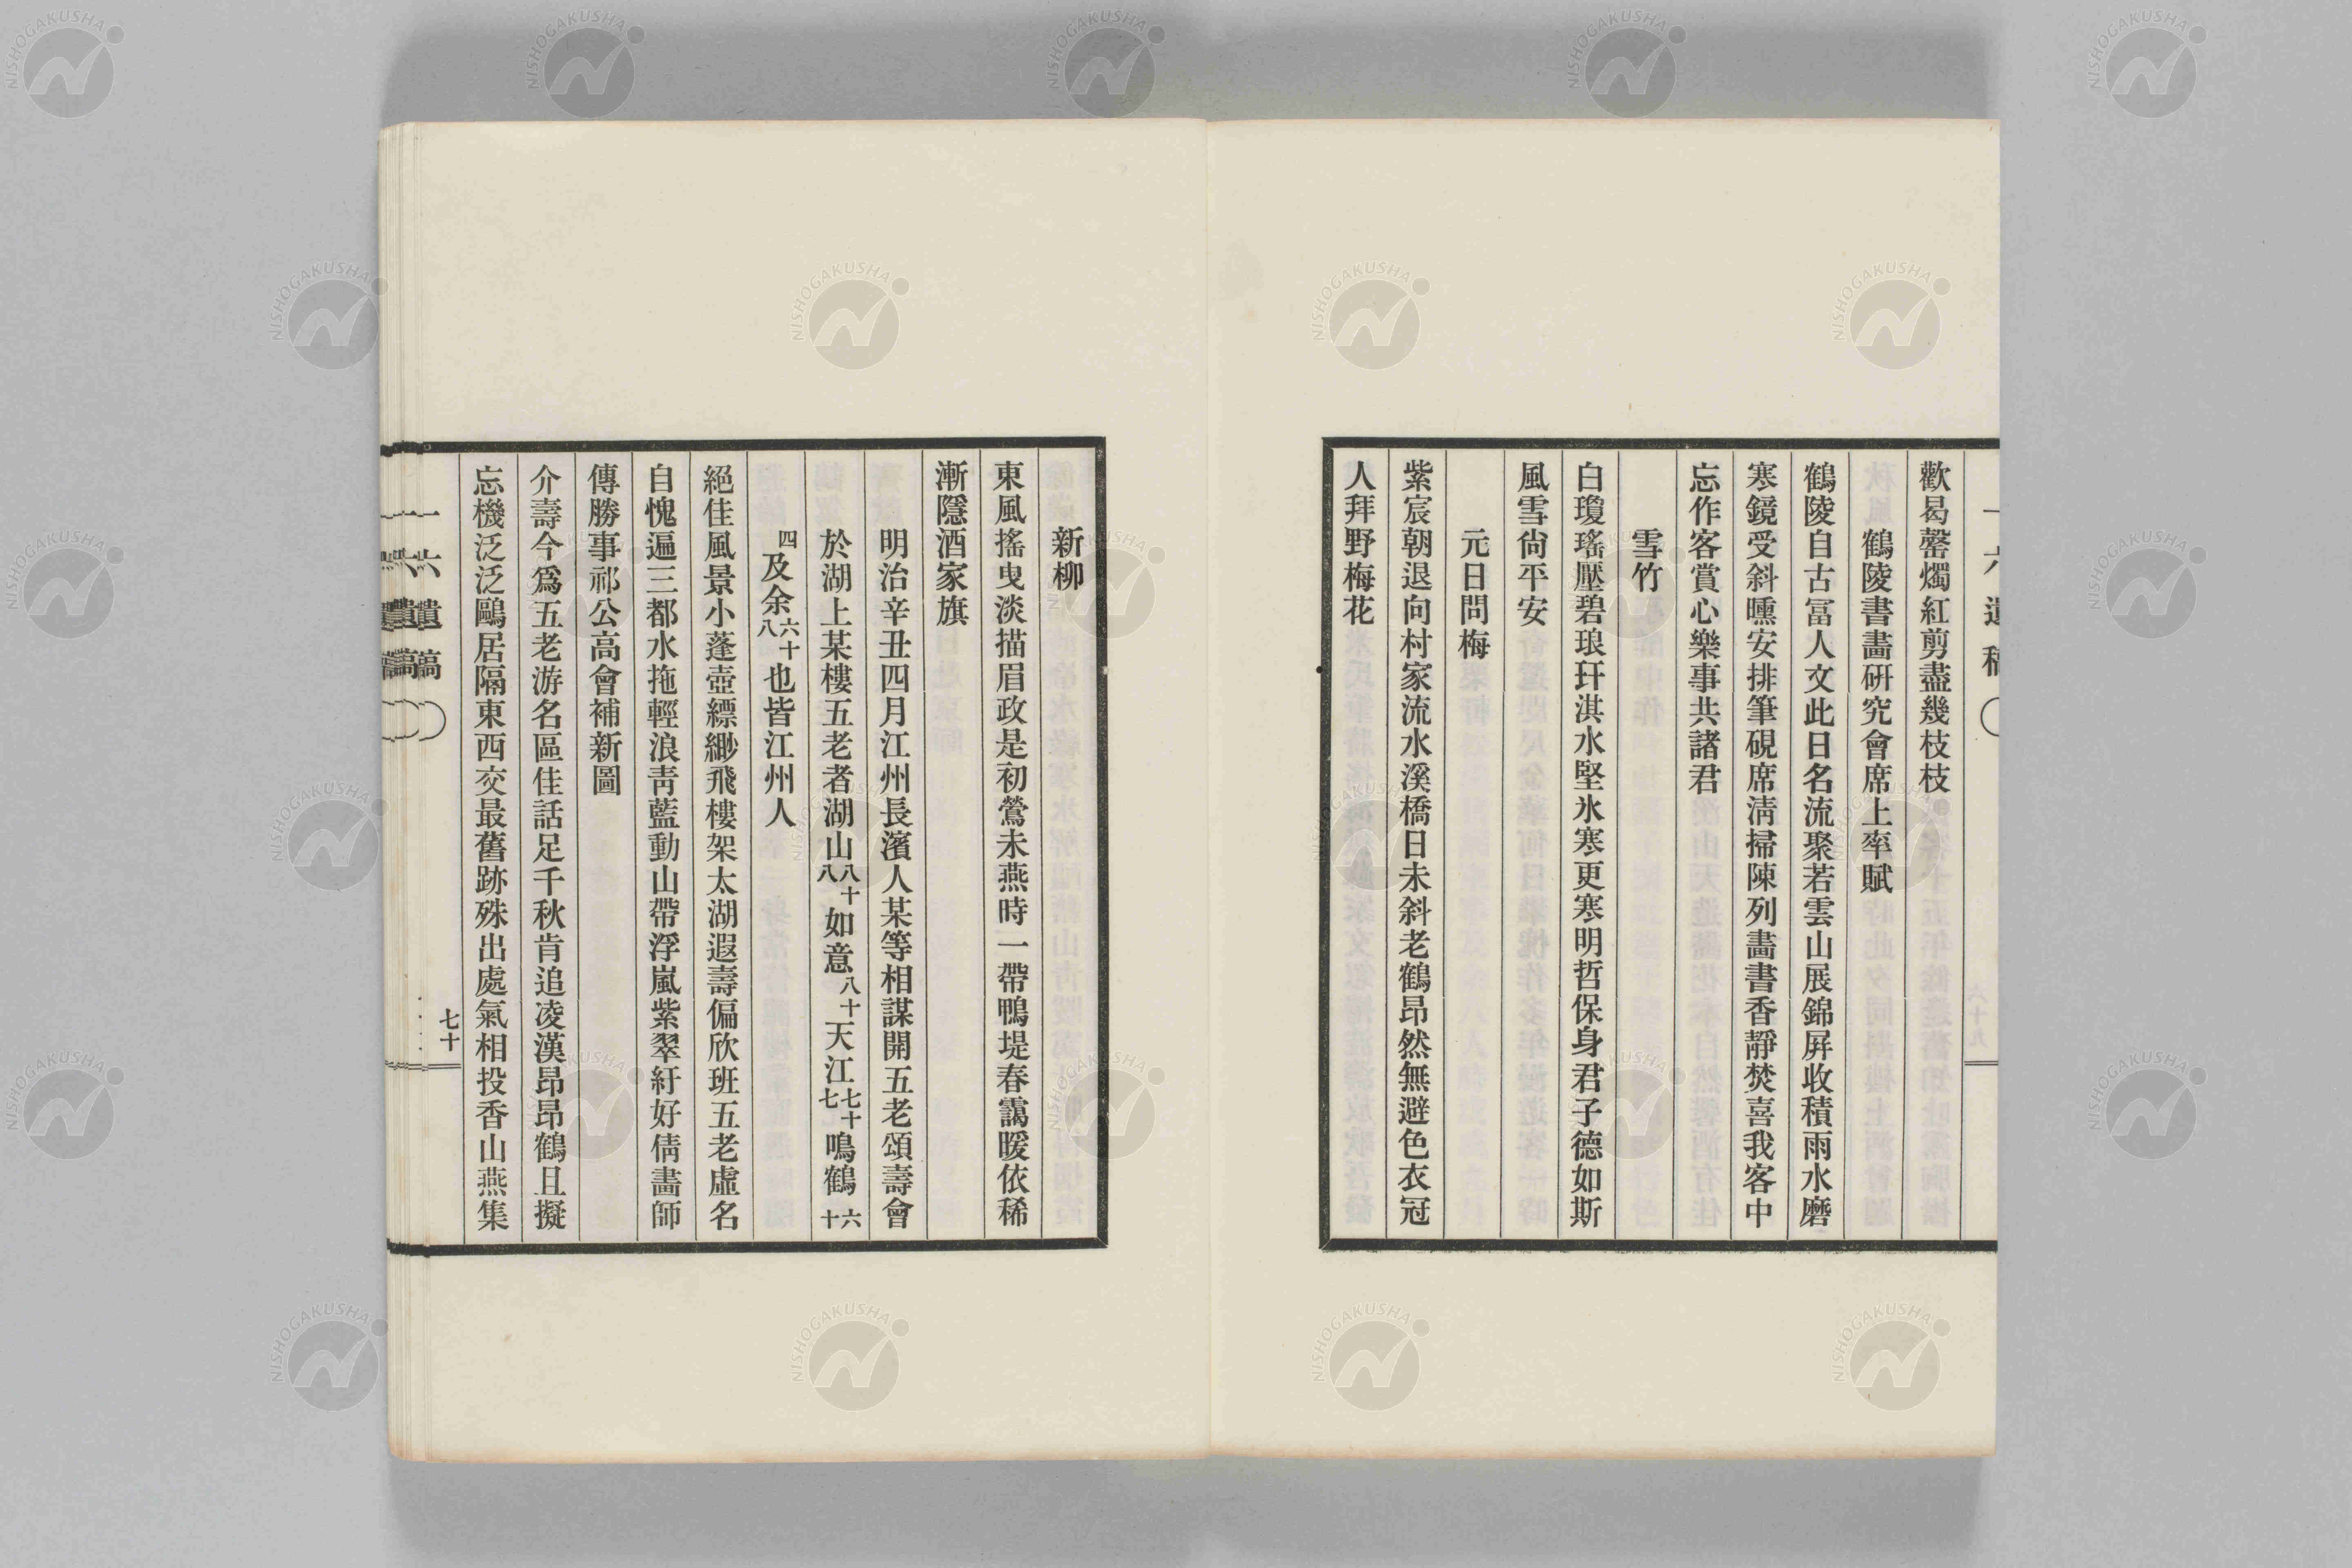 歡曷罄燭紅剪盡幾枝枝
鶴陵書畫硏究會席上率賦
鶴陵自古冨人文此日名流聚若雲山展錦屛收積雨水磨
寒鏡受斜曛安排筆硯席淸掃陳列畵書香靜焚喜我客中
忘作客賞心樂事共諸君
雪竹
白瓊瑤壓碧琅玕淇水堅氷寒更寒明哲保身君子德如斯
風雪尙平安
元日問梅
紫宸朝退向村家流水溪橋日未斜老鶴昂然無避色衣冠
人拜野梅花
新柳
東風搖曳淡描眉政是初鶯未燕時一帶鴨堤春靄暖依稀
漸隱酒家旗
明治辛丑四月江州長濱人某等相謀開五老頌壽會
於湖上某樓五老者湖山八十八如意八十天江七十七鳴鶴六十
四及余六十八也皆江州人
絕佳風景小蓬壺縹緲飛樓架太湖遐壽偏欣班五老虛名
自愧遍三都水拖輕浪靑藍動山帶浮嵐紫翠紆好倩畵師
傳勝事祁公高會補新圖
介壽今爲五老游名區佳話足千秋肯追凌漢昂昂鶴且擬
忘機泛泛鷗居隔東西交最舊跡殊出處氣相投香山燕集
一六遺稿
七十
NISHOGAKUSHA